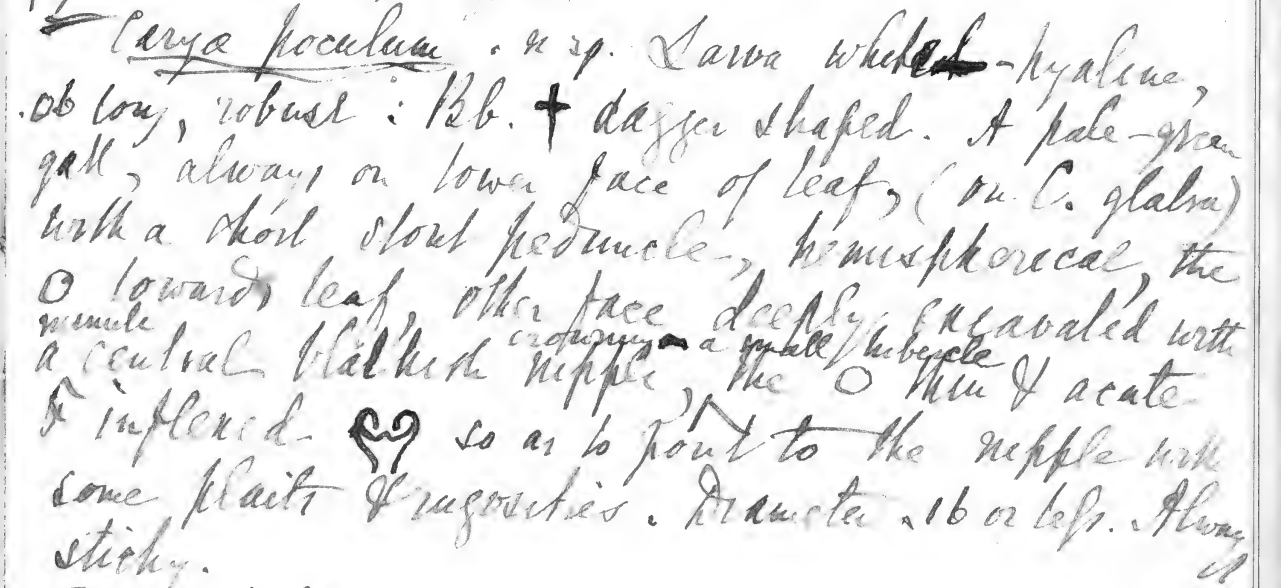 Caryæ poculum. n sp. Larva white-hyaline,
oblong, robust : Bb. † dagger shaped. A pale-green
gall, always on lower face of leaf, (on C. glabra)
with a short stout peduncle, hemispherical, the
O towards leaf, other face deeply excavated with
minute crowning a small tubercle
a central blackish nipple, the O thin & acute
& inflexed so as to point to the nipple with
some plaits & rugosities. Diameter .16 or less. Always
sticky.